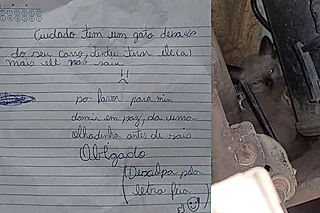 Cuidado tem um gato debaixo
do seu carro, tentei tirar ele(a)
mais ele não saiu
por favor para mim
dormir em paz, da uma
olhadinha antes de sair
Obrigado
(Desculpa pela
letra feia)